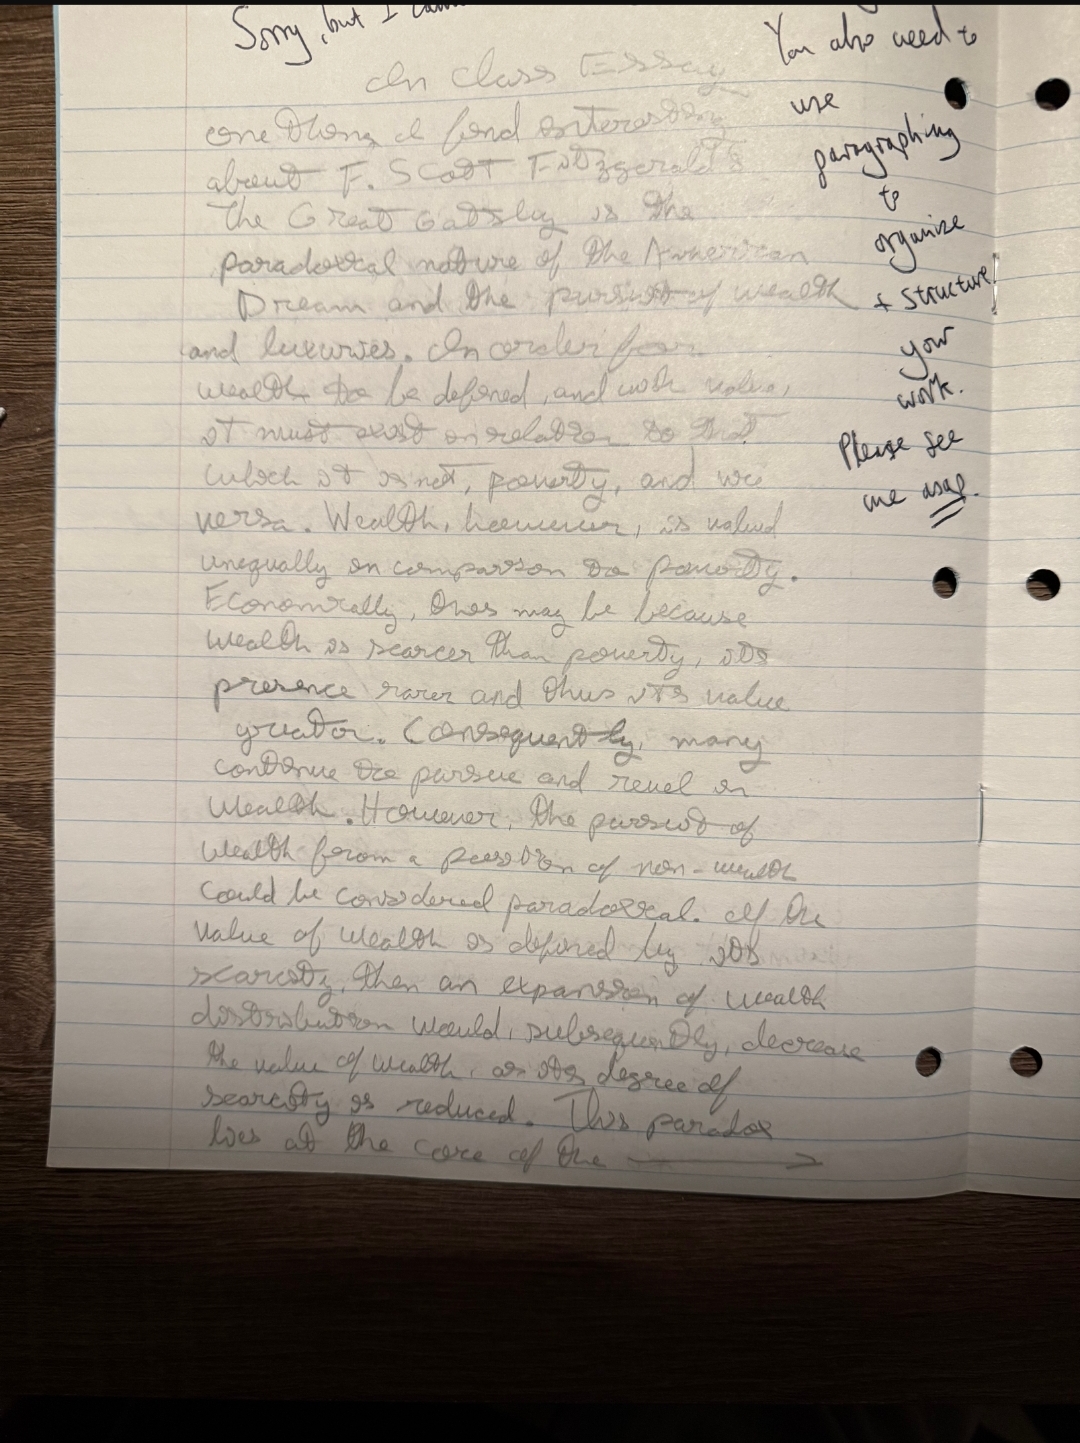 Sorry, but I
You also need to
use
paragraphing
to
organize
+ structure
your
work.
Please see
me asap.
In Class Essay
One thing I find interesting
about F. Scott Fitzgerald's
The Great Gatsby is the
paradoxical nature of the American
Dream and the pursuit of wealth
and luxuries. In order for
wealth to be defined, and with value,
it must exist in relation to that
which it is not, poverty, and vice
versa. Wealth, however, is valued
unequally in comparison to poverty.
Economically, this may be because
wealth is scarcer than poverty, its
presence rarer and thus its value
greater. Consequently, many
continue to pursue and revel in
wealth. However, the pursuit of
wealth from a position of non-wealth
could be considered paradoxical. If the
value of wealth is defined by its
scarcity, then an expansion of wealth
distribution would, subsequently, decrease
the value of wealth, as its degree of
scarcity is reduced. This paradox
lies at the core of the →